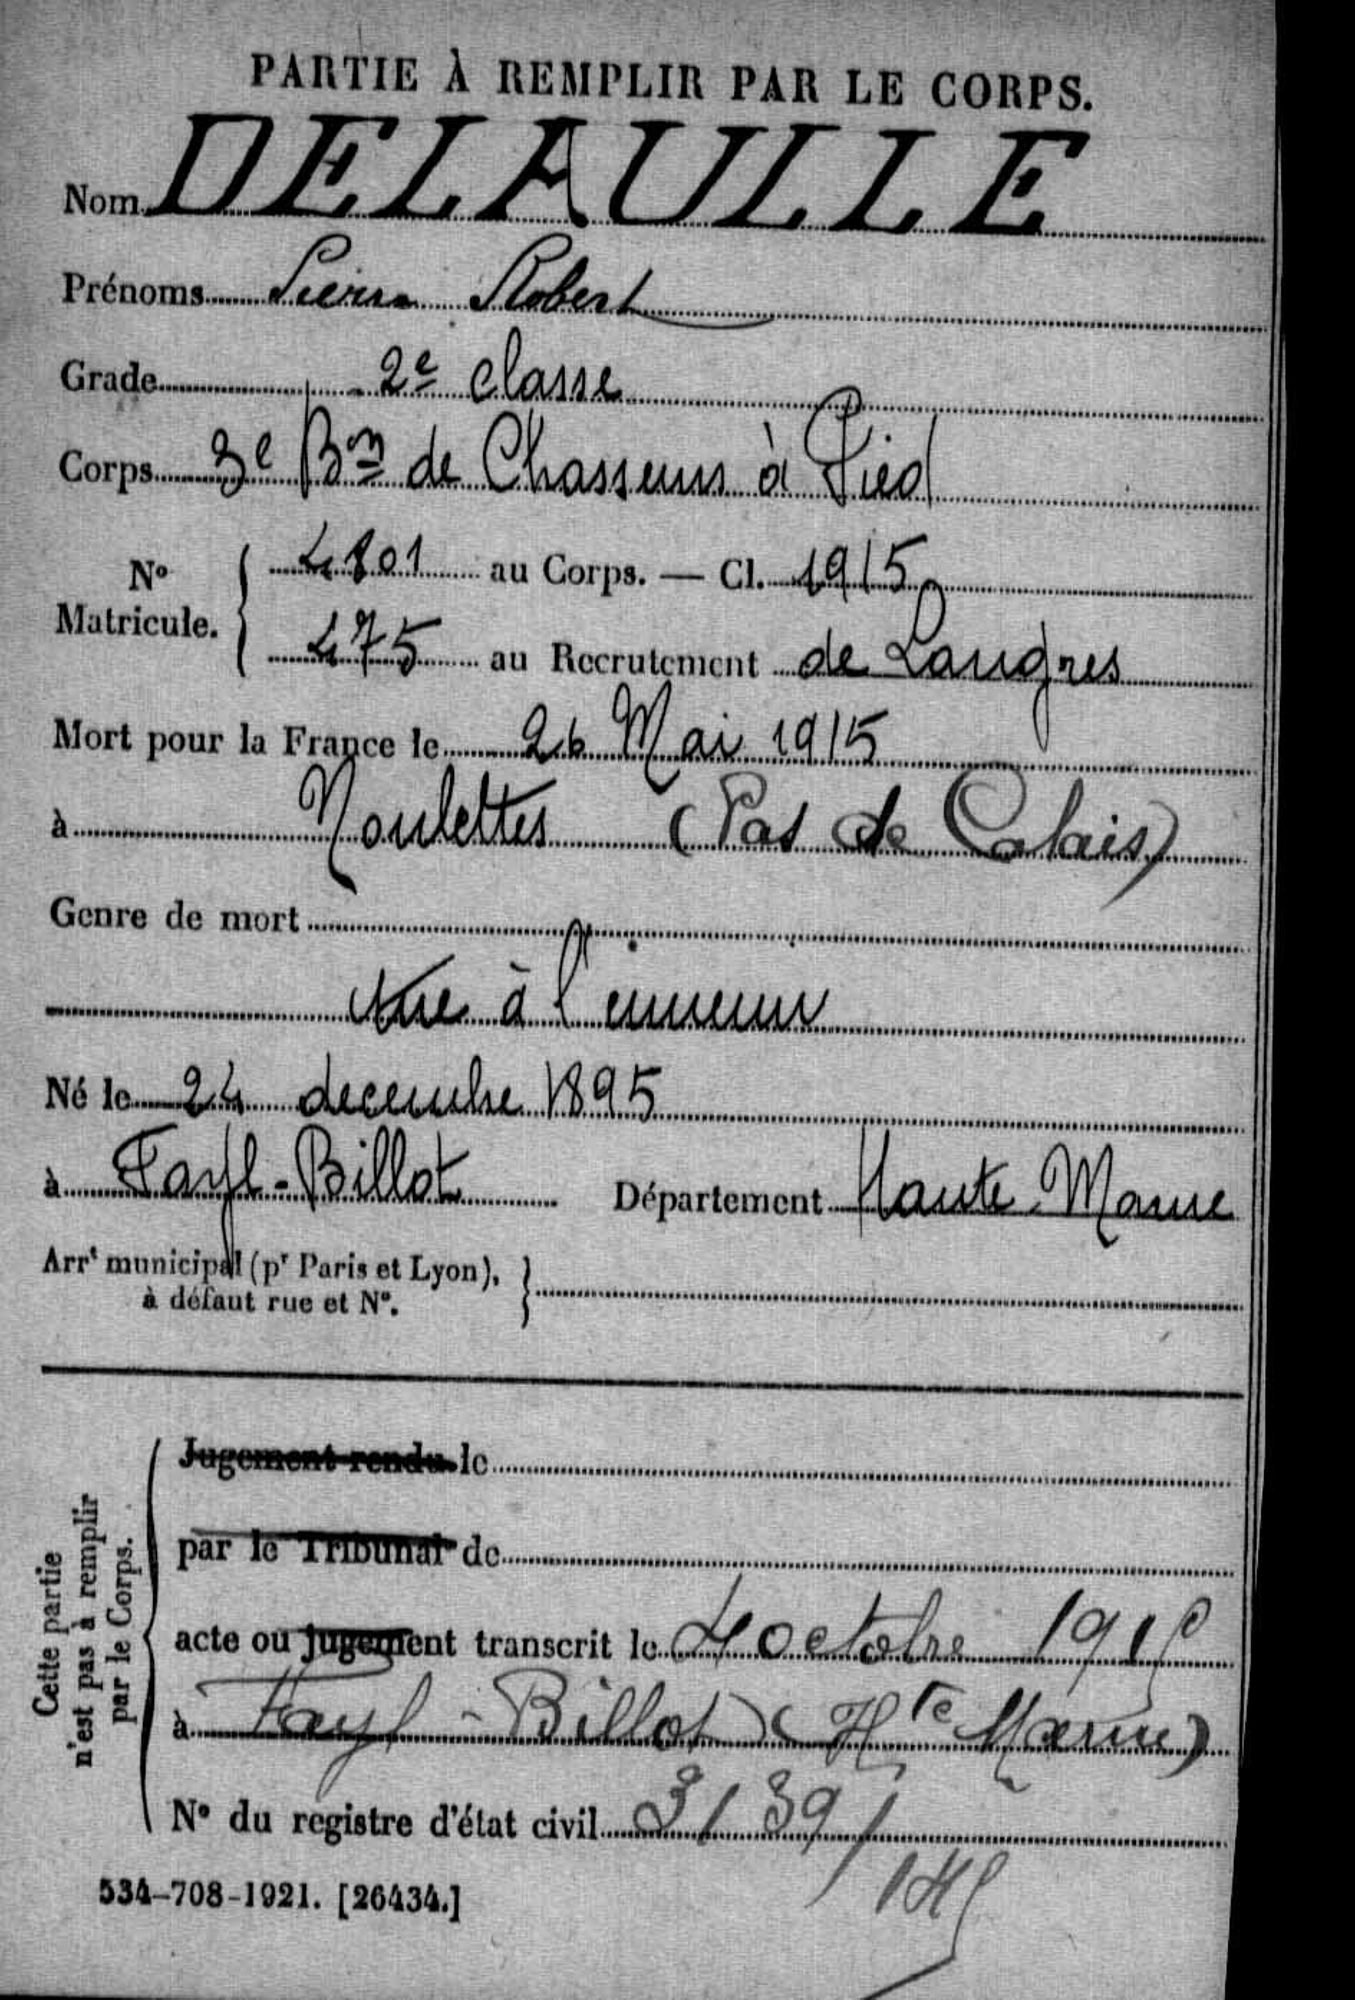 PARTIE À REMPLIR PAR LE CORPS.
Nom DELAULLE
Prénoms Pierre Robert
Grade 2e classe
Corps 3e Bon de Chasseurs à Pied
No Matricule. { 4801 au Corps. — Cl. 1915
475 au Recrutement de Langres
Mort pour la France le 26 Mai 1915
à Noulettes (Pas de Calais)
Genre de mort
tué à l'ennemi
Né le 24 decembre 1895
à Fayl-Billot Département Haute-Marne
Arrt municipal (pr Paris et Lyon),
à défaut rue et No.
Cette partie
n'est pas à remplir
par le Corps.
Jugement rendu le
par le Tribunal de
acte ou jugement transcrit le 4 octobre 1915
à Fayl-Billot (Hte Marne)
No du registre d'état civil
534-708-1921. [26434.]